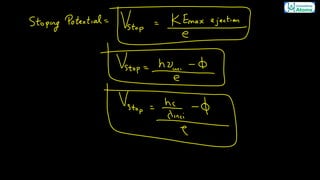 Stoping Potential = V_stop = KEmax ejection / e
V_stop = hν_inci − Φ / e
V_stop = hc/λ_inci − Φ / e
Atoms